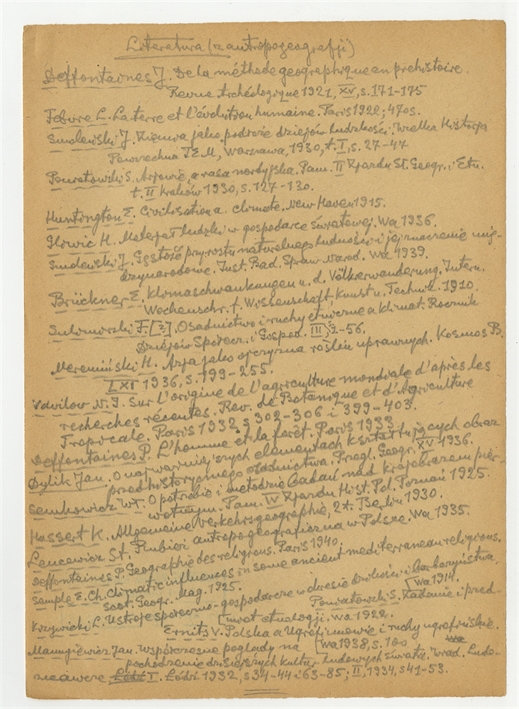 Literatura (z antropogeografji)
Deffontaines J. De la méthode geographique en prehistoire.
Revue Archéologique 1921, XV, s. 171-175
Febvre L. La terre et l'évolution humaine. Paris 1922; 470 s.
Smoleński J. Ziemia jako podłoże dziejów ludzkości. Wielka Historja
Powszechna TEM, Warszawa, 1930, t. I, s. 27-47
Poniatowski S. Aryjowie a rasa nordyjska. Pam. II Zjazdu Sł. Geogr. i Etn.
t. II Kraków 1930, s. 127-130.
Huntington E. Civilisation a. climate. New Haven 1915.
H. Materjał ludzki w gospodarce światowej. Wa 1936.
Smoleński J. Gęstość przyrostu naturalnego ludności i jej znaczenie mię-
dzynarodowe. Inst. Bad. Spraw Narod. Wa 1939.
Brückner E. Klimaschwankungen u. d. Völkerwanderung. Intern.
Wochenschr. f. Wissenschaft, Kunst u. Technik. 1910.
F. [?], Osadnictwo i ruchy etniczne a klimat. Rocznik
Dziejów Społecz. i Gospod. III, 2-56.
H. Azja jako ojczyzna roślin uprawnych. Kosmos B.
LXI 1936, s. 199-255.
Vavilov N. I. Sur l'origine de l'agriculture mondiale d'après les
recherches récentes. Rev. de Botanique et d'Agriculture
Tropicale. Paris 1932, s 302-306 i 399-403.
Deffontaines P. L'homme et la forêt. Paris 1933
Dylik Jan. O najważniejszych elementach kształtujących obraz
przedhistorycznego osadnictwa. Przegl. Geogr. XV 1936.
Semkowicz Wł. O potrzebie i metodzie badań nad krajobrazem pier-
wotnym. Pam. IV Zjazdu Hist. Pol. Poznań 1925.
Hassert K. Allgemeine Verkehrsgeographie, 2 t. Berlin 1930.
Lencewicz St. Rubieże antropogeograficzne w Polsce. Wa 1935.
Deffontaines P. Géographie des religions. Paris 1940.
Semple E. Ch. Climatic influences in some ancient mediterranean religions.
Scot. Geogr. Mag. 1925.
Krzywicki L. Ustroje społeczno-gospodarcze w okresie dzikości i barbarzyństwa.
[Wa 1914.
Poniatowski S. Zadanie i przed-
[miot etnologji. Wa 1922.
Ernits V. Polska a Ugrofinnowie i ruchy ugrofińskie.
[Wa 1938, s. 100
Manugiewicz Jan. Współczesne poglądy na
pochodzenie dzisiejszych kultur ludowych świata. Wiad. Ludo-
znawcze I. Łódź 1932, s 34-44 i 63-85; II, 1934, s 41-53.